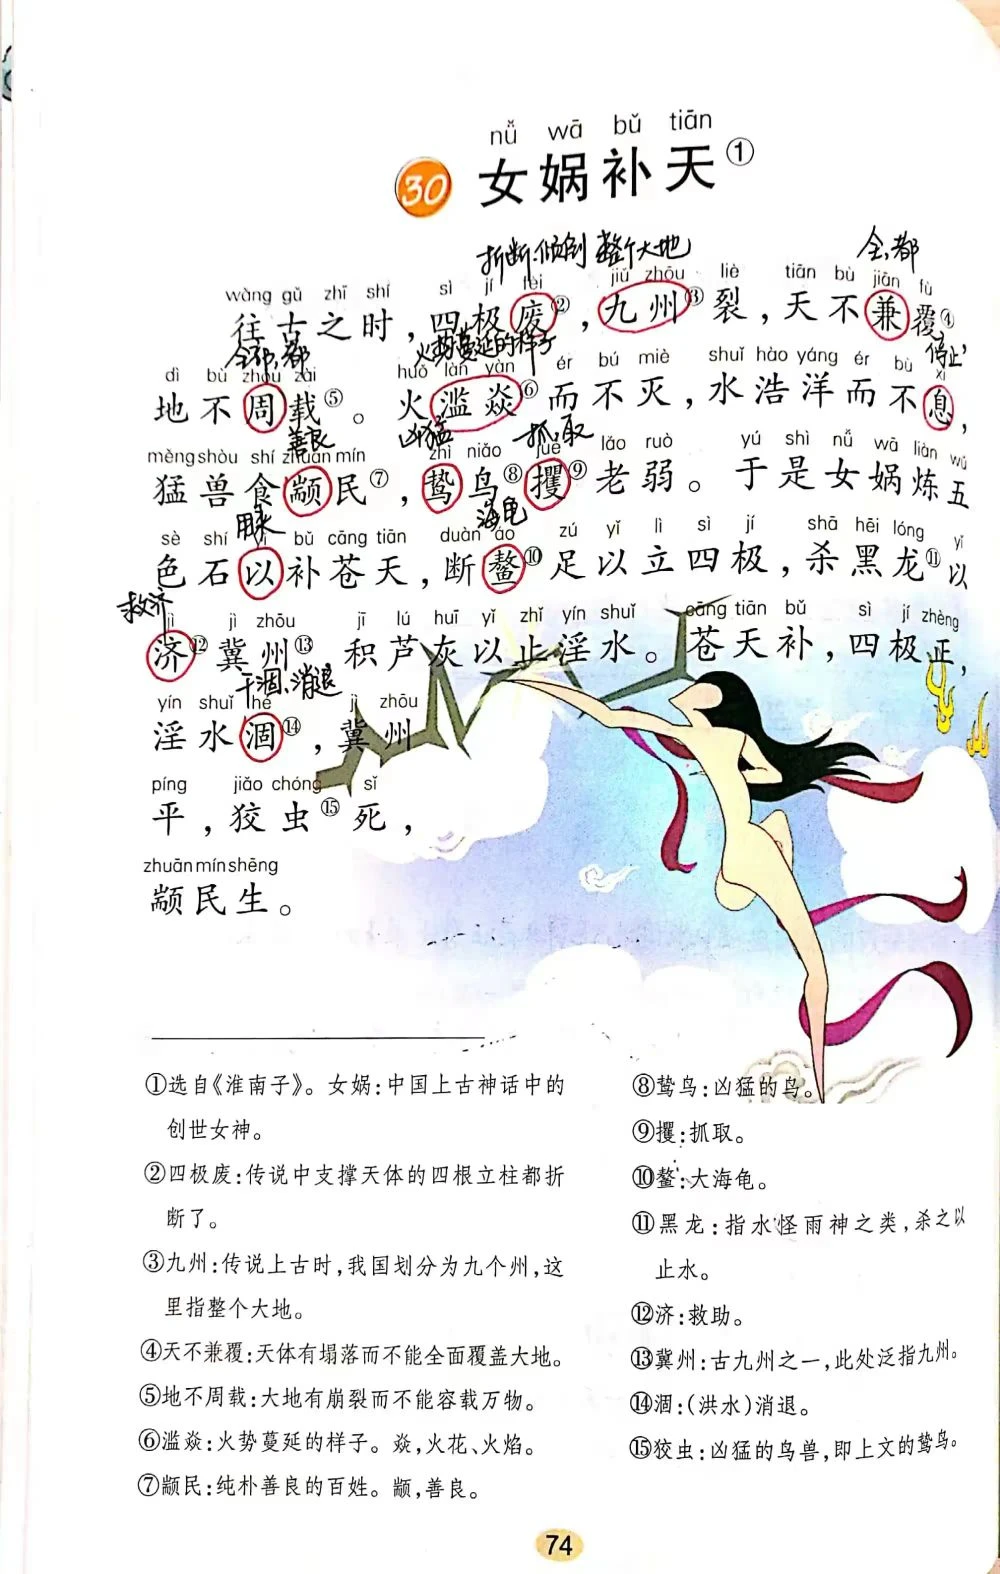 nǚ wā bǔ tiān
30 女娲补天①
折断.倾倒 整个大地 全、都
wàng gǔ zhī shí sì jí fèi jiǔ zhōu liè tiān bù jiān fù
往古之时，四极废②，九州③裂，天不兼覆④
全部，都 火势蔓延的样子 停止
dì bù zhōu zài huǒ làn yàn ér bú miè shuǐ hào yáng ér bù xī
地不周载⑤。火滥焱⑥而不灭，水浩洋而不息，
善良 凶猛 抓取
měng shòu shí zhuān mín zhì niǎo jué láo ruò yú shì nǚ wā liàn wǔ
猛兽食颛民⑦，鸷鸟⑧攫⑨老弱。于是女娲炼五
用来 海龟
sè shí yǐ bǔ cāng tiān duàn áo zú yǐ lì sì jí shā hēi lóng yǐ
色石以补苍天，断鳌⑩足以立四极，杀黑龙⑪以
救济
jì jì zhōu jī lú huī yǐ zhǐ yín shuǐ cāng tiān bǔ sì jí zhèng
济⑫冀州⑬积芦灰以止淫水。苍天补，四极正，
干涸.消退
yín shuǐ hé jì zhōu
淫水涸⑭，冀州
píng jiǎo chóng sǐ
平，狡虫⑮死，
zhuān mín shēng
颛民生。
①选自《淮南子》。女娲：中国上古神话中的
创世女神。
②四极废：传说中支撑天体的四根立柱都折
断了。
③九州：传说上古时，我国划分为九个州，这
里指整个大地。
④天不兼覆：天体有塌落而不能全面覆盖大地。
⑤地不周载：大地有崩裂而不能容载万物。
⑥滥焱：火势蔓延的样子。焱，火花、火焰。
⑦颛民：纯朴善良的百姓。颛，善良。
⑧鸷鸟：凶猛的鸟。
⑨攫：抓取。
⑩鳌：大海龟。
⑪黑龙：指水怪雨神之类，杀之以
止水。
⑫济：救助。
⑬冀州：古九州之一，此处泛指九州。
⑭涸：（洪水）消退。
⑮狡虫：凶猛的鸟兽，即上文的鸷鸟。
74